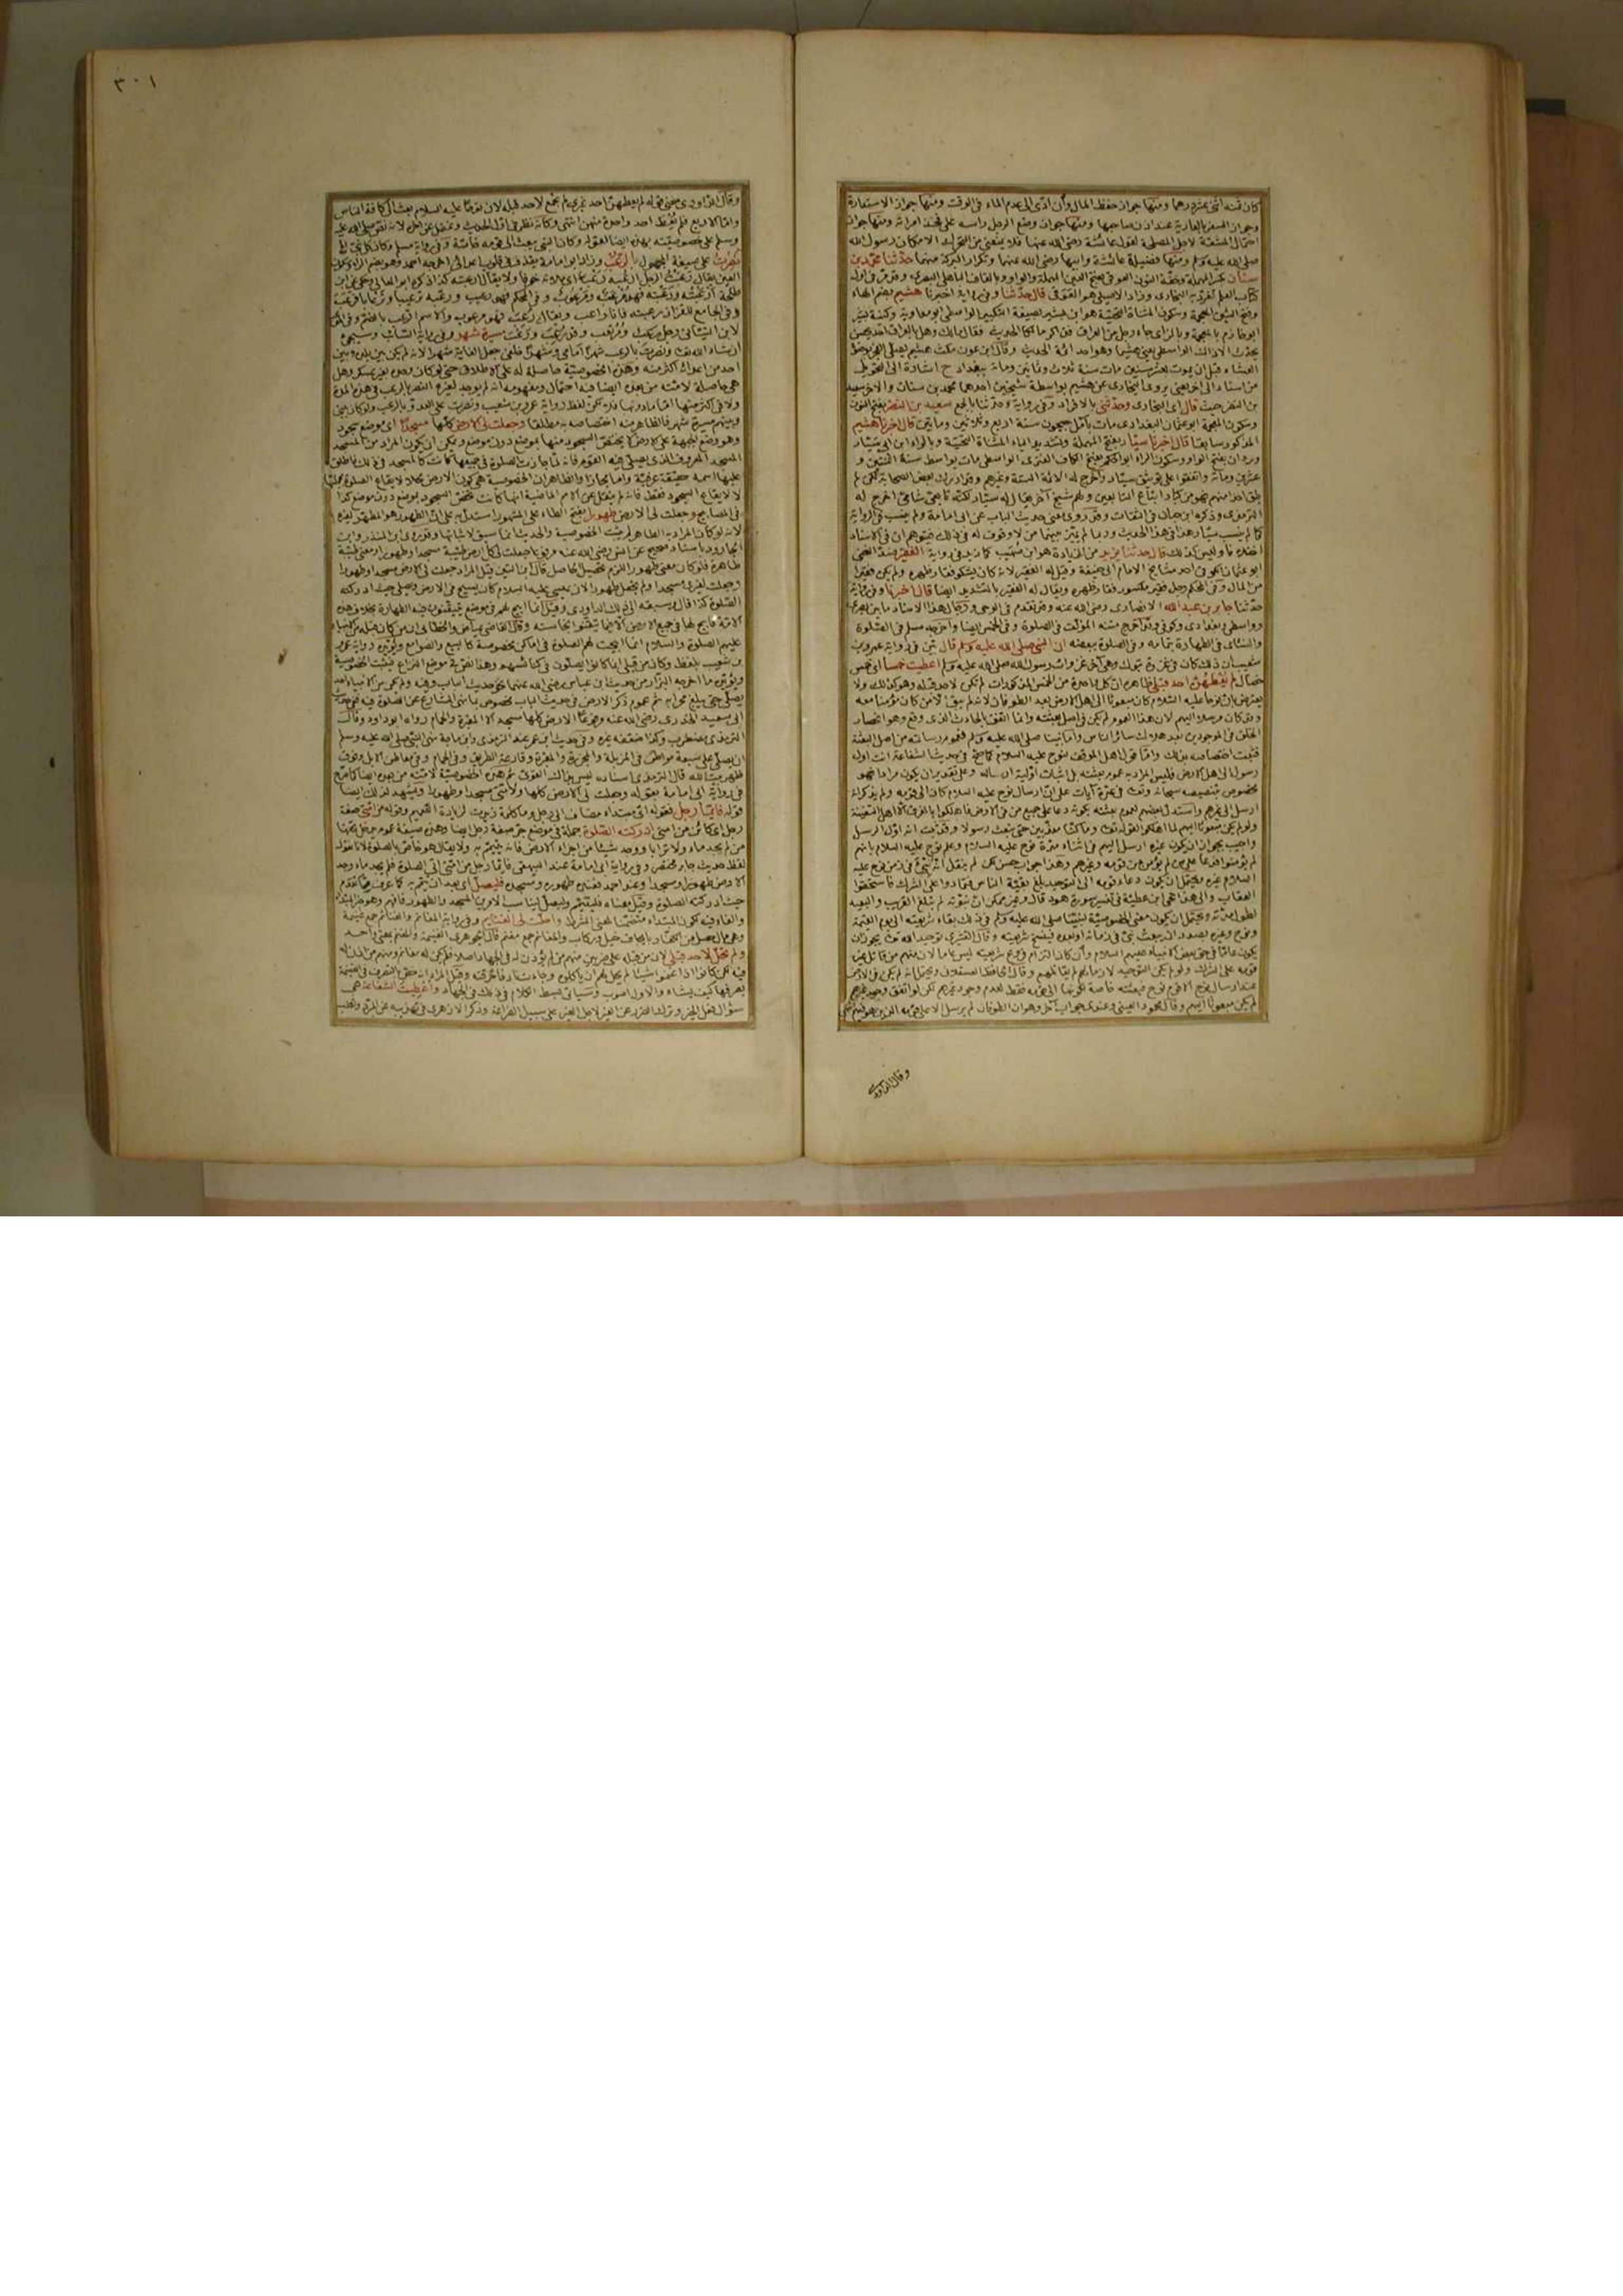 كان ثمنه اثنى عشر درهما ومنها جواز حفظ المال وأن ادّى الى عدم الماء فى الوقت ومنها جواز الاستعارة
وجواز السفر بالعارية عند اذن صاحبها ومنها جواز وضع الرجل راسه على فخذ امراته ومنها جواز
احتمال المشقة لاجل المصلحة لقول عائشة رضى الله عنها فلا يمنعنى من التحرك الا مكان رسول الله
صلى الله عليه وسلم ومنها فضيلة عائشة وابيها رضى الله عنهما وتكرار البركة منهما حدّثنا محمّد بن
سنان بكسر المهملة وخفّة النون العوقى بفتح العين المهملة والواو وبالقاف الباهلى البصرى وقد مرّ فى اول
كتاب العلم تفرّد به البخارى وزاد الاصيلى هو العوقى قال حدّثنا وفى رواية اخبرنا هشيم بضم الهاء
وفتح الشين المعجمة وسكون المثناة التحتية هو ابن بشير بصيغة التكبير الواسطى ابو معاوية
العشاء قبل ان يموت بعشر سنين مات سنة ثلاث وثمانين ومائة ببغداد ح اشارة الى التحويل
من اسناد الى اخر يعنى يروى البخارى عن هشيم بواسطة شيخين احدهما محمد بن سنان والاخر سعيد
بن النضر حيث قال اى البخارى وحدّثنى بالافراد وفى رواية وحدّثنا بالجمع سعيد بن النضر بفتح النون
وسكون المعجمة ابو عثمان البغدادى مات بآمل جيحون سنة اربع وثلاثين ومايتين قال اخبرنا هشيم
المذكور سابقا قال اخبرنا سيّار بفتح المهملة وتشديد الياء المثناة التحتية وبالراء ابن ابى سيّار
وردان بفتح الواو وسكون الراء ابو الحكم بفتح الكاف العنزى الواسطى مات بواسط سنة اثنتين و
عشرين ومائة واتفقوا على توثيق سيّار واخرج له الائمّة الستة وغيرهم وقد ادرك بعض الصحابة لكن لم
يلق احدا منهم فهو من كبار اتباع التابعين ولهم شيخ آخر يقال له سيّار لكنه تابعى شامى اخرج له
الترمذى وذكره ابن حبان فى الثقات وقد روى معنى حديث الباب عن ابى امامة ولم ينسب فى الرواية
كما لم ينسب سيّار هذا فى هذا الحديث وربما لم يميّز بينهما من لا وقوف له فى ذلك فيتوهم ان فى الاسناد
اختلافا وليس كذلك قال حدثنا يزيد من الزيادة هو ابن صُهيب كما زيد فى رواية الفقير ضدّ الغنى
ابو عثمان الكوفى احد مشايخ الامام ابى حنيفة وقيل له الفقير لانه كان يشكو فقار ظهره ولم يكن فقيرا
من المال وفى المحكم رجل فقير مكسور فقار ظهره ويقال له الفقير بالتشديد ايضا قال اخبرنا وفى رواية
حدّثنا جابر بن عبد الله الانصارى رضى الله عنه وقد تقدم فى الوحى ورجال هذا الاسناد ما بين بصرى
وواسطى وبغدادى وكوفى وقد اخرج متنه المؤلف فى الصلوة وفى الخمس ايضا واخرجه مسلم فى الصلوة
والنسائى فى الطهارة بتمامه وفى الصلوة ببعضه ان النبى صلى الله عليه وسلم قال بيّن فى رواية عمرو بن
شعيب ان ذلك كان فى غزوة تبوك وهى آخر غزوات رسول الله صلى الله عليه وسلم اعطيت خمسا اى خمس
خصال لم يُعطهُنّ احد قبلى ظاهره ان كل واحدة من الخمس المذكورات لم تكن لاحد قبله وهو كذلك ولا
يعترض بان نوحا عليه السّلام كان مبعوثا الى اهل الارض بعد الطوفان لانه لم يبق الا من كان مؤمنا معه
وقد كان مرسلا اليهم لان هذا العموم لم يكن فى اصل بعثته وانما اتفق بالحادث الذى وقع وهو انحصار
الخلق فى الموجودين بعد هلاك سائر الناس وأما نبينا صلى الله عليه وسلم فعموم رسالته من اصل البعثة
فثبت اختصاصه بذلك وامّا قول اهل الموقف لنوح عليه السلام كما صحّ فى حديث الشفاعة انت اول
رسول الى اهل الارض فليس المراد به عموم بعثته بل اثبات اوّلية ارساله وعلى تقدير ان يكون مرادا فهو
مخصوص بتنصيصه سبحانه وتعالى فى عدّة آيات على انّ ارسال نوح عليه السلام كان الى قومه ولم يذكر انه
ارسل الى غيرهم واستدل بعضهم لعموم بعثته بكونه دعا على جميع من فى الارض فاهلكوا بالغرق الا اهل السّفينة
ولو لم يكن مبعوثا اليهم لما اهلكوا لقوله تعالى وما كنّا معذّبين حتى نبعث رسولا وقد ثبت انه اوّل الرسل
واجيب بجواز ان يكون غيره ارسل اليهم فى اثناء مدّة نوح عليه السلام وعلم نوح عليه السلام بانهم
لم يؤمنوا فدعا على من لم يؤمن من قومه وغيرهم وهذا جواب حسن لكن لم ينقل انه نُبّئ فى زمن نوح عليه
السلام غيره ويحتمل ان يكون دعاء قومه الى التوحيد بلغ بقيّة الناس فتمادوا على الشرك فاستحقوا
العقاب والى هذا نحا ابن عطيّة فى تفسير سورة هود قال وغير ممكن ان نبوّته لم تبلغ القريب والبعيد
لطول مدّته ويحتمل ان يكون معنى الخصوصيّة لنبيّنا صلى الله عليه وسلم فى ذلك بقاء شريعته الى يوم القيمة
ونوح وغيره بصدد ان يبعث نبىّ فى زمانه او بعده فينسخ شريعته وقال القشيرى توحيد الله تعالى يجوز ان
يكون عامّا فى حق بعض الانبياء عليهم السلام وان كان التزام فروع شريعته ليس عاما لان منهم من قاتل غير
قومه على الشرك ولو لم يكن التوحيد لازما لهم لم يقاتلهم وقال الحافظ العسقلانى ويحتمل انه لم يكن فى الارض
عند ارسال نوح الا قوم نوح فبعثته خاصة لكونها الى قومه فقط لعدم وجود غيرهم لكن لو اتفق وجود غيرهم
لم يكن مبعوثا اليهم وقال محمود العينى وعندى جواب آخر وهو ان الطوفان لم يرسل الا على قومه الذين هو فيهم
وقال الداودى
٣٠١
وقال الداودى معنى قوله لم يعطهنّ احد غيرى لم يجمع لاحد قبله لان نوحا عليه السلام بعث الى كافة الناس
وامّا الاربع فلم يُعْطَ احد واحدة منهن انتهى وكانه نظر فى اوّل الحديث وغفل عن آخره لانه نصّ صلى الله عليه
وسلم على خصوصيّته بهذه ايضا لقوله وكان النبى يبعث الى قومه خاصّة وفى رواية مسلم وكان كل نبىّ الخ
نُصرتُ على صيغة المجهول بالرّعب وزاد ابو امامة يقذف فى قلوب اعدائى اخرجه احمد وهو بضم الراء وسكون
العين
لابن التيّانى مسيرة شهر
ان شاء الله تعالى ونصرت بالرعب شهرًا أمامى وشهرًا خلفى جعل الغاية شهرا لانه لم يكن بين بلده وبين
احد من اعدائه اكثر منه وهذه الخصوصيّة حاصلة له على الاطلاق حتى لو كان وحده بغير عسكر وهل
هى حاصلة لامّته من بعده ايضا فيه احتمال ومفهومه انه لم يوجد لغيره النصر بالرعب فى هذه المدة
ولا فى اكثر منها امّا ما دونها فلا لكن لفظ رواية عمرو بن شعيب ونصرت على العدو بالرعب ولو كان بينى
وبينهم مسيرة شهر فالظاهر منه اختصاصه به مطلقا وجعلت لى الارض كلّها مسجدًا اى موضع سجود
وهو وضع الجبهة على الارض لا يختصّ السجود منها بموضع دون موضع ويمكن ان يكون المراد من المسجد
المسجد المعروف الذى يصلّى فيه القوم فانه لمّا جازت الصلوة فى جميعها كانت كالمسجد فى ذلك فاطلق
عليها اسمه
فى المصابيح وجعلت لى الارض طهورا بفتح الطاء على المشهور استدلّ به على انّ الطهور هو المطهّر لغيره
لانه لو كان المراد به الطاهر لم يثبت الخصوصية والحديث انما سيق لاثباتها وقد روى ابن المنذر وابن
الجارود باسناد صحيح عن انس رضى الله عنه مرفوعا جعلت لى كل ارض طيّبة مسجدا وطهورا ومعنى طيّبة
طاهرة فلو كان معنى طهورا طاهرا للزم تحصيل الحاصل قال ابن التين قيل المراد جعلت لى الارض مسجدا وطهورا
وجعلت لغيرى مسجدا ولم تجعل طهورا لان عيسى عليه السلام كان يسيح فى الارض ويصلى حيث ادركته
الصّلوة كذا قال وسبقه الى ذلك الداودى وقيل انما ابيح لهم فى موضع يتيقنون فيه الطهارة بخلاف هذه
الامّة فابيح لها فى جميع الارض الا فيما تيقّنوا نجاسته وقال القاضى عياض والخطابى ان من كان قبله من الانبياء
عليهم الصلوة والسلام انما ابيحت لهم الصلوة فى اماكن مخصوصة كالبيع والصوامع ويؤيّده رواية عمرو
بن شعيب بلفظ وكان من قبلى انما كانوا يصلّون فى كنائسهم وهذا نص فى موضع النزاع فيثبت الخصوصية
ويؤيّده ما اخرجه البزار من حديث ابن عباس رضى الله عنهما نحو حديث الباب وفيه ولم يكن من الانبياء احد
يصلّى حتى يبلغ محرابه ثم عموم ذكر الارض فى حديث الباب مخصوص بما نهى الشارع عن الصلوة فيه ففى حديث
ابى سعيد الخدرى رضى الله عنه مرفوعًا الارض كلّها مسجد الا المقبرة والحمام رواه ابو داود وقال
الترمذى مضطرب وكذا ضعّفه غيره وفى حديث ابن عمر عند الترمذى وابن ماجة نهى النبى صلى الله عليه وسلم
ان يصلّى على سبعة مواطن فى المزبلة والمجزرة والمقبرة وقارعة الطريق وفى الحمام وفى معاطن الابل وفوق
ظهر بيت الله قال الترمذى اسناده ليس بذاك القوىّ ثم هذه الخصوصيّة لامّته من بعده ايضا كما صرّح
فى رواية ابى امامة بقوله وجعلت لى الارض كلّها ولامّتى مسجدا وطهورا ويشهد لذلك ايضا
قوله فايّما رجل فقوله اىّ مبتداء مضاف الى رجل وما كلمة زيدت لزيادة التعميم وقوله من امّتى صفة
رجل اى كائن من امتى ادركته الصّلوة جملة فى موضع جرّ صفة رجل ايضا وهذه صيغة عموم يدخل تحتها
من لم يجد ماء ولا ترابا ووجد شيئا من اجزاء الارض فانه يتيمّم به ولا يقال هو خاص بالصلوة لانا نقول
لفظ حديث جابر مختصر وفى رواية ابى امامة عند البيهقى فايّما رجل من امّتى اتى الصلوة فلم يجد ماء وجد
الارض طهورا ومسجدا وعند احمد فعنده طهوره ومسجده فليصلّ اى بعد ان يتيمّم به كما عرف مما تقدّم
حيث ادركته الصلوة وقيل معناه فليتيمّم وليصلّ ليناسب الامرين المسجد والطهور فافهم وهو خبر المبتداء
والفاء فيه لكون المبتداء متضمّنا لمعنى الشرط واحلّت لى الغنايم وفى رواية المغانم والغنائم جمع غنيمة
وهى مال حصل من الكفّار بايجاف خيل وركاب والمغانم جمع مغنم قال الجوهرى الغنيمة والمغنم بمعنى واحد
ولم تحلّ لاحد قبلى لان من قبله على ضربين منهم من لم يؤذن له فى الجهاد اصلا فلم يكن له مغانم ومنهم من اذن له
فيه لكن كانوا اذا غنموا شيئا لم يحلّ لهم ان ياكلوه وجاءت نار فاحرقته وقيل المراد انه خصّ بالتصرف فى الغنيمة
يصرفها كيف يشاء والاول اصوب وسياتى بسط الكلام فى ذلك فى الجهاد واعطيت الشفاعة هى
سؤال فعل الخير وترك الضرر عن الغير لاجل الغير على سبيل الضراعة وذكر الازهرى فى تهذيبه عن المبرّد وثعلب